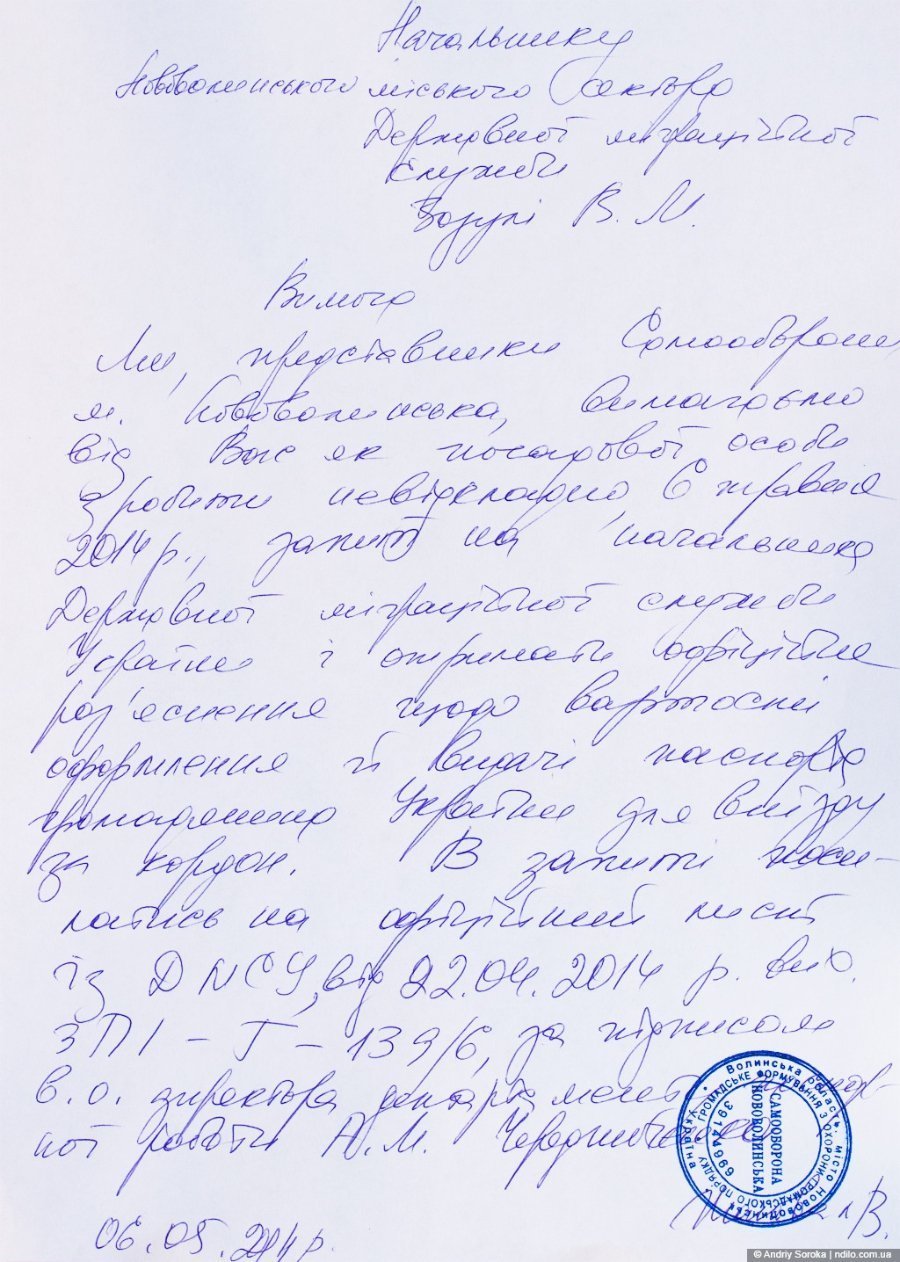 Начальнику
Нововолинського міського сектора
Державної міграційної
служби
Зозулі В. М.
Вимога
Ми, представники Самооборони
м. Нововолинська, вимагаємо
від Вас як посадової особи
зробити невідкладно, 6 травня
2014 р., запит на начальника
Державної міграційної служби
України і отримати офіційне
роз'яснення щодо вартості
оформлення й видачі паспорта
громадянина України для виїзду
за кордон. В запиті поси-
латись на офіційний лист
із ДМСУ, від 22.04.2014 р. вих.
ЗПІ-Т-139/6, за підписом
в.о. директора департаменту
ної роботи А.М.
06.05.2014 р. В.
Україна • Волинська область • місто Нововолинськ
ГРОМАДСЬКЕ ФОРМУВАННЯ З ОХОРОНИ ГРОМАДСЬКОГО ПОРЯДКУ
САМООБОРОНА
НОВОВОЛИНСЬКА
© Andriy Soroka | ndilo.com.ua